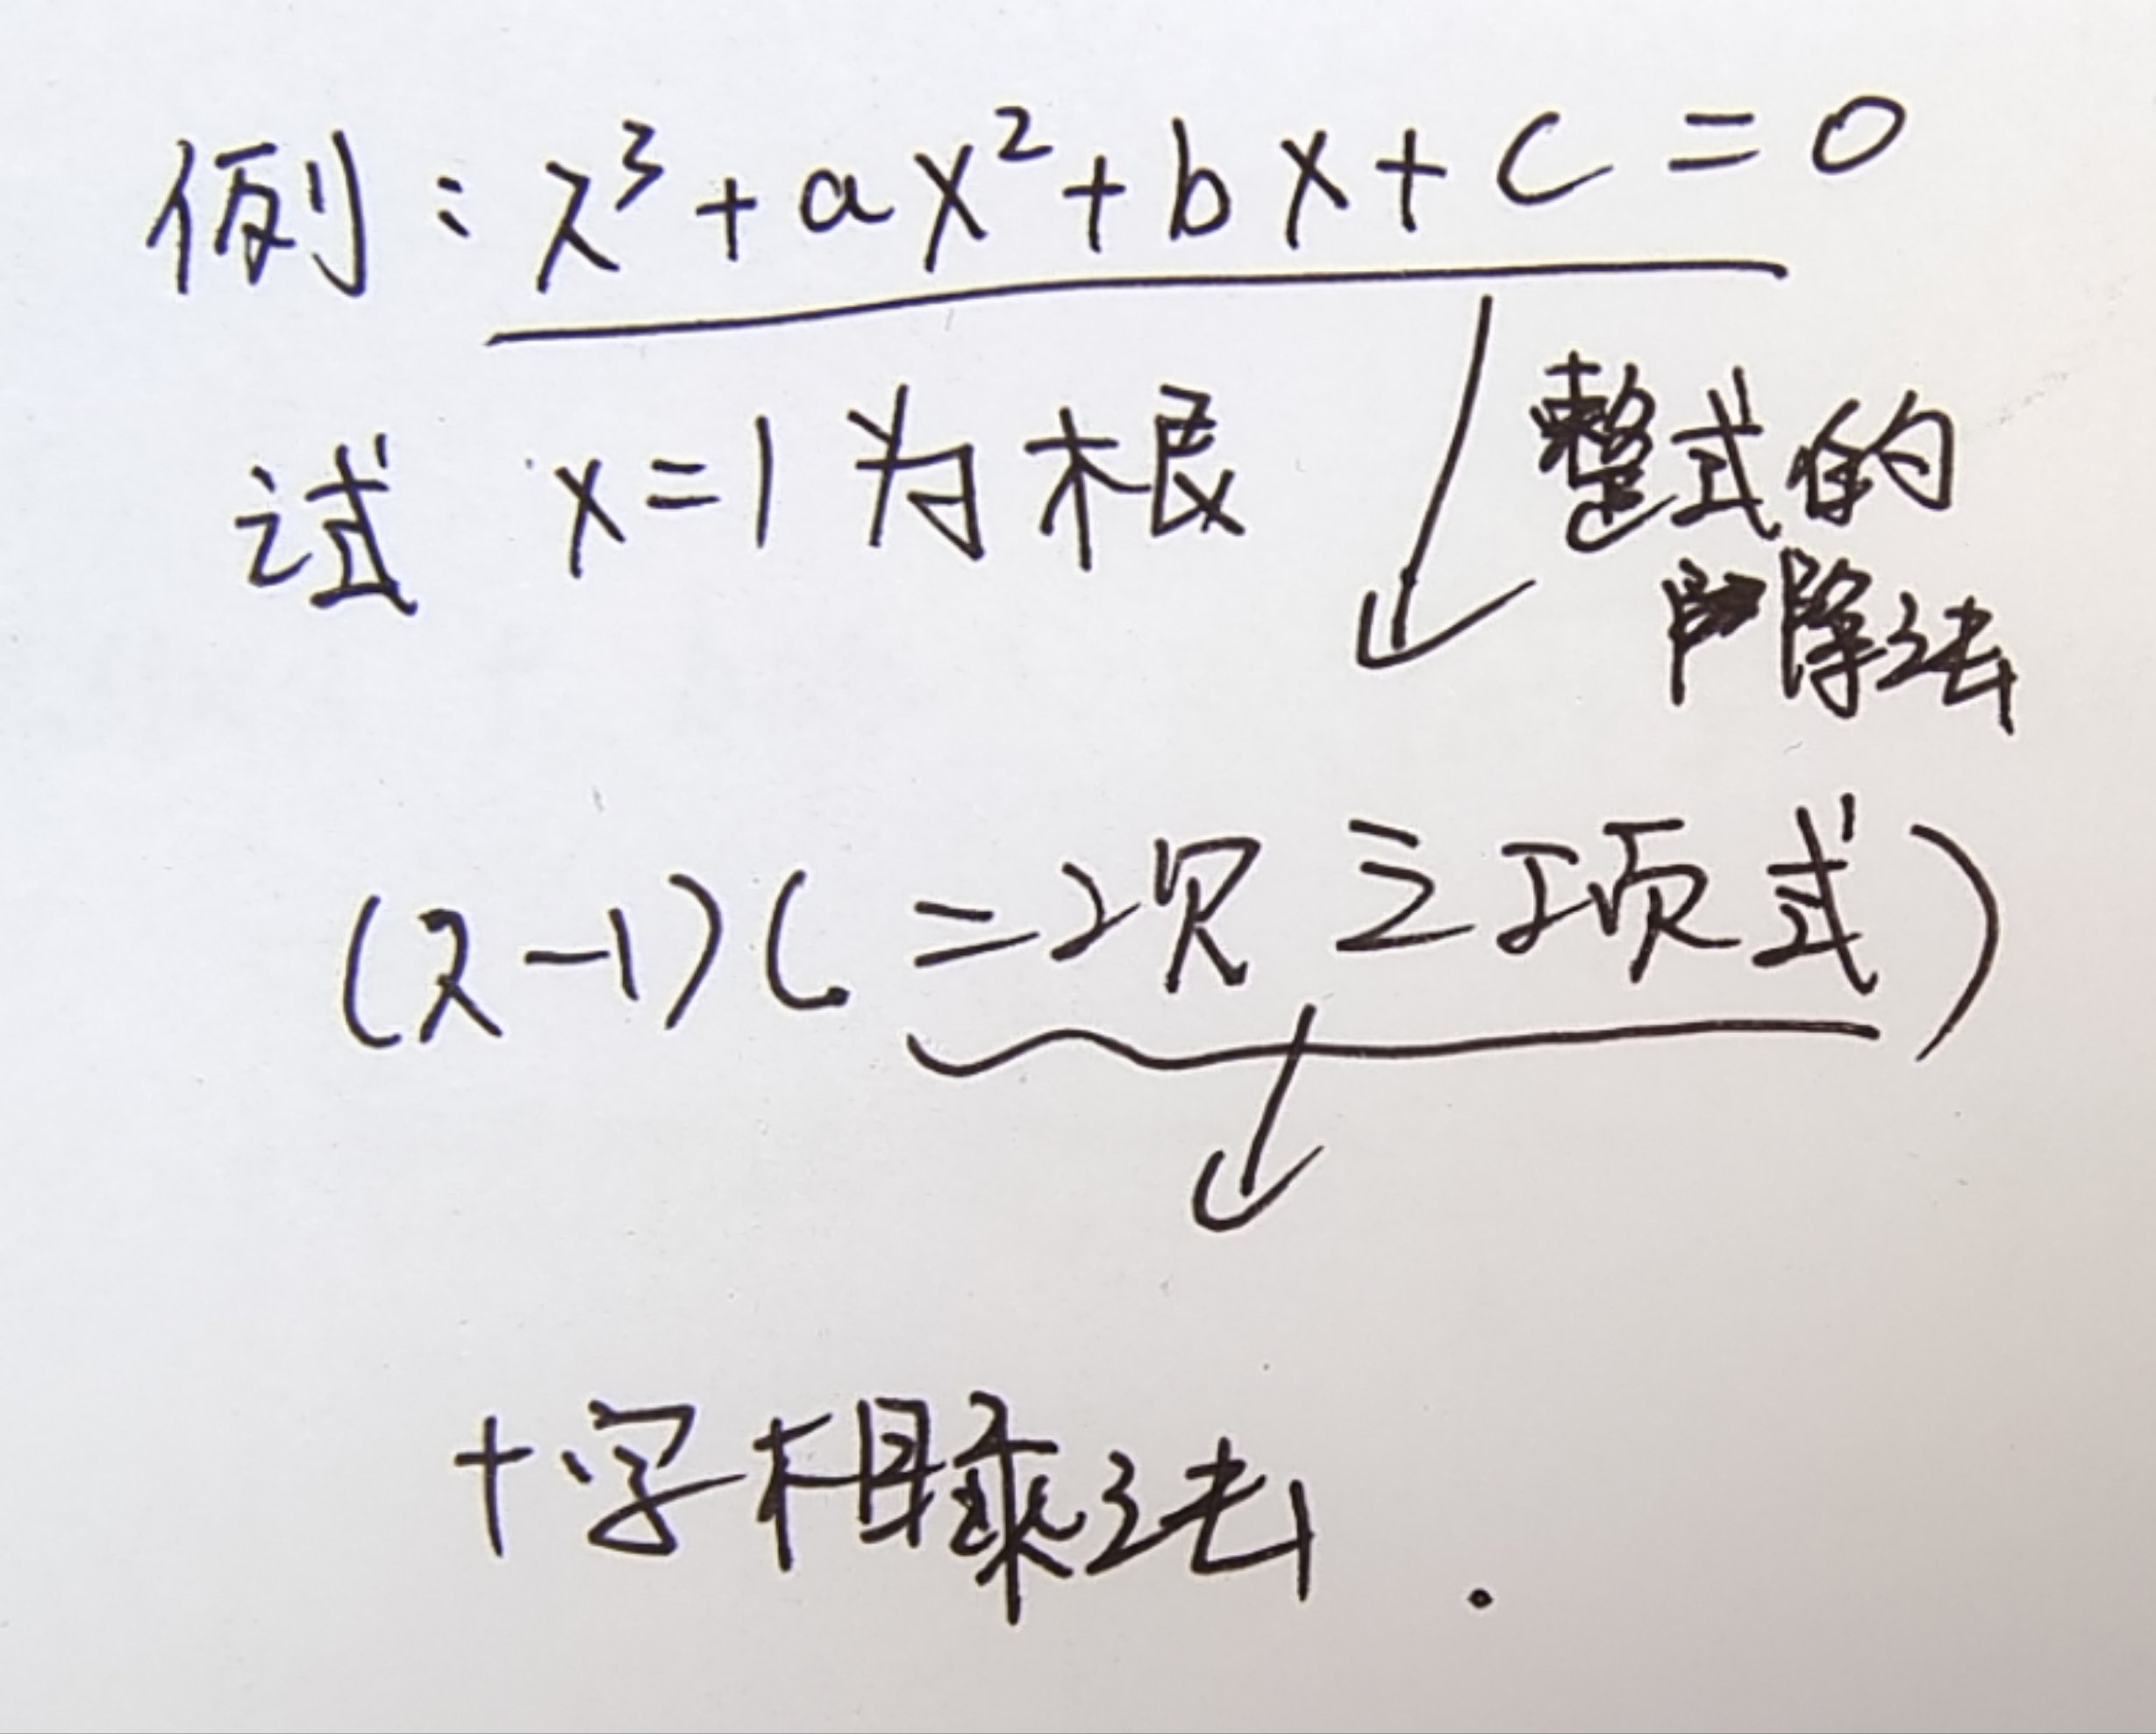 例：x³+ax²+bx+c=0
试 x=1为根
整式的
除法
(x-1)(二次三项式)
十字相乘法.